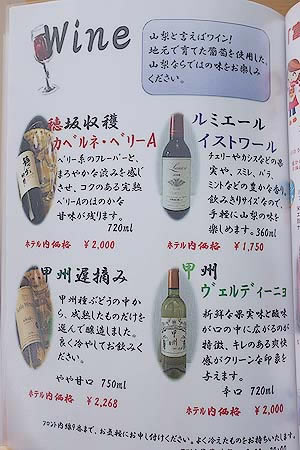 Wine
山梨と言えばワイン!
地元で育てた葡萄を使用した、
山梨ならではの味をお楽しみ
ください。
穂坂収穫
カベルネ・ベリーA
ベリー系のフレーバーと、
まろやかな渋みを感じ
させ、コクのある完熟
ベリーAのほのかな
甘味が残ります。
720ml
ホテル内価格 ¥2,000
ルミエール
イストワール
チェリーやカシスなどの果
実や、スミレ、バラ、
ミントなどの豊かな香り。
飲みきりサイズなので、
手軽に山梨の味を
楽しめます。360ml
ホテル内価格 ¥1,750
甲州遅摘み
甲州種ぶどうの中か
ら、成熟したものだけを
選んで醸造しました。
良く冷やしてお飲みく
ださい。
やや甘口 750ml
ホテル内価格 ¥2,268
甲州
ヴェルディーニョ
新鮮な果実味と酸味
が口の中に広がるのが
特徴。キレのある爽快
感がクリーンな印象を
与えます。
辛口 720ml
ホテル内価格
フロント内線9番まで、お気軽にお申し付けください。よく冷えたものをお持ちいたします。